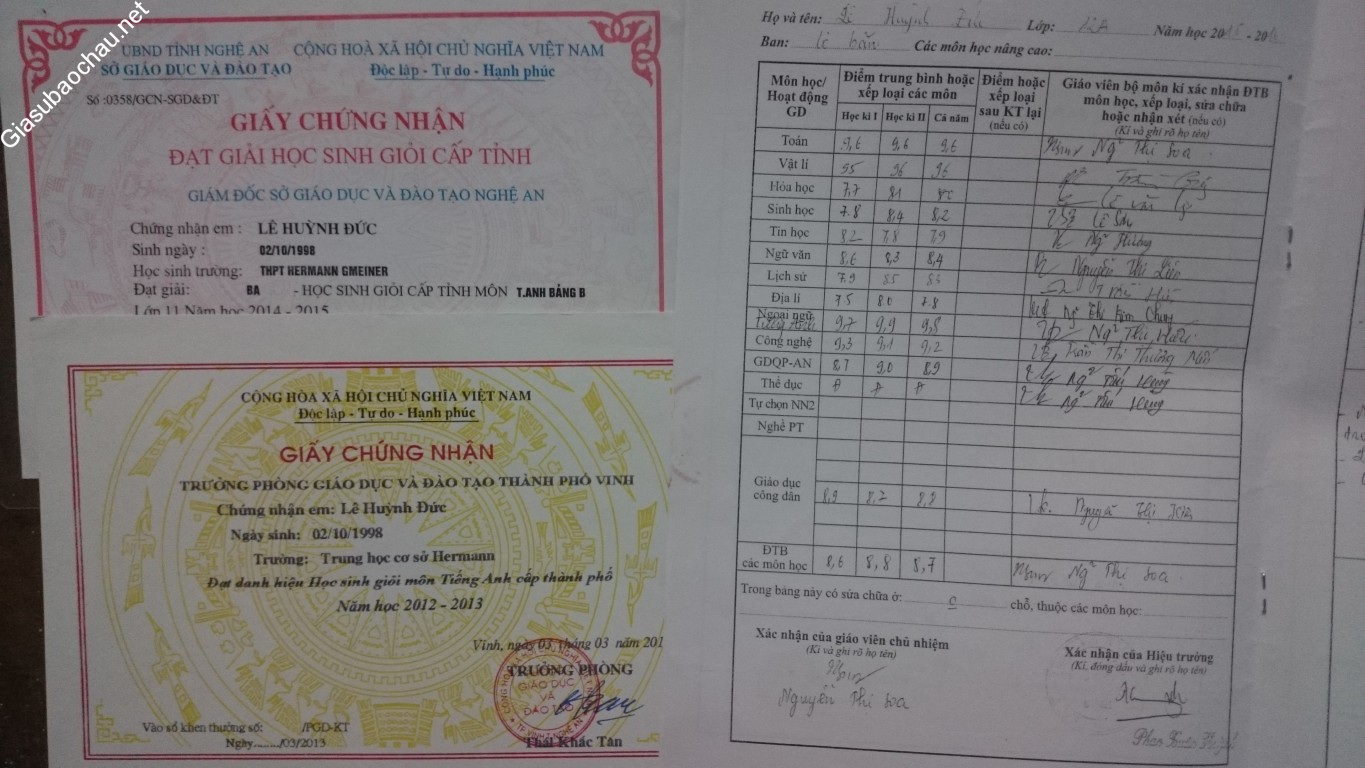 Giasubaochau.net
UBND TỈNH NGHỆ AN
SỞ GIÁO DỤC VÀ ĐÀO TẠO
CỘNG HOÀ XÃ HỘI CHỦ NGHĨA VIỆT NAM
Độc lập - Tự do - Hạnh phúc
Số :0358/GCN-SGD&ĐT
GIẤY CHỨNG NHẬN
ĐẠT GIẢI HỌC SINH GIỎI CẤP TỈNH
GIÁM ĐỐC SỞ GIÁO DỤC VÀ ĐÀO TẠO NGHỆ AN
Chứng nhận em : LÊ HUỲNH ĐỨC
Sinh ngày : 02/10/1998
Học sinh trường: THPT HERMANN GMEINER
Đạt giải: BA - HỌC SINH GIỎI CẤP TỈNH MÔN T.ANH BẢNG B
Lớp 11 Năm học 2014 - 2015
CỘNG HÒA XÃ HỘI CHỦ NGHĨA VIỆT NAM
Độc lập - Tự do - Hạnh phúc
GIẤY CHỨNG NHẬN
TRƯỞNG PHÒNG GIÁO DỤC VÀ ĐÀO TẠO THÀNH PHỐ VINH
Chứng nhận em: Lê Huỳnh Đức
Ngày sinh: 02/10/1998
Trường: Trung học cơ sở Hermann
Đạt danh hiệu Học sinh giỏi môn Tiếng Anh cấp thành phố
Năm học 2012 - 2013
Vinh, ngày 03 tháng 03 năm 201
TRƯỞNG PHÒNG
GIÁO DỤC
VÀ
ĐÀO TẠO
Thái Khắc Tân
Vào sổ khen thưởng số: /PGD-KT
Ngày......../03/2013
Họ và tên: Lê Huỳnh Đức Lớp: 12A Năm học 2015 - 2016
Ban: Cơ bản Các môn học nâng cao:
Môn học/ Hoạt động GD
Điểm trung bình hoặc xếp loại các môn
Học kì I Học kì II Cả năm
Điểm hoặc xếp loại sau KT lại (nếu có)
Giáo viên bộ môn kí xác nhận ĐTB môn học, xếp loại, sửa chữa hoặc nhận xét (nếu có)
(Kí và ghi rõ họ tên)
Toán 9,6 9,6 9,6 Ng~ Thị Hoa
Vật lí 9,6 9,6
Hóa học 7,7 8,1
Sinh học 7.8 8,4 8,2
Tin học 8,2 7,8 7,9
Ngữ văn 8,6 8,3 8,4
Lịch sử 7,9 8,5 8,3
Địa lí 7,5 8.0 7,8
Ngoại ngữ Tiếng Anh 9,7 9,9 9,8
Công nghệ 9,3 9,1 9,2
GDQP-AN 8,7 9,0 8,9
Thể dục Đ Đ Đ
Tự chọn NN2
Nghề PT
Giáo dục công dân 8,9 8,7 8,8
ĐTB các môn học 8,6 8,8 8,7 Ng~ Thị Hoa
Trong bảng này có sửa chữa ở: 0 chỗ, thuộc các môn học:
Xác nhận của giáo viên chủ nhiệm
(Kí và ghi rõ họ tên)
Nguyễn Thị Hoa
Xác nhận của Hiệu trưởng
(Kí, đóng dấu và ghi rõ họ tên)